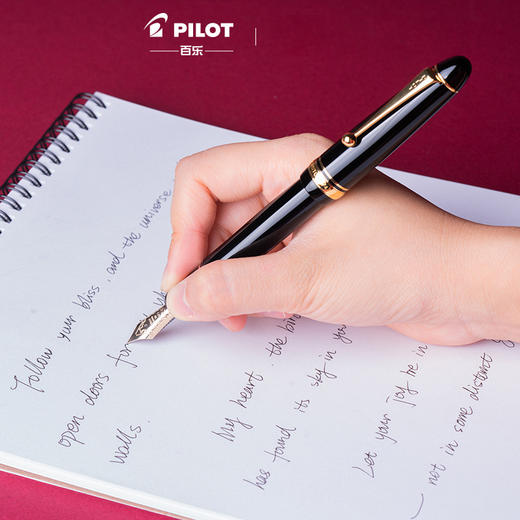 PILOT
百乐
Follow your bliss, and the universe
open doors for wh
walls.
My heart, the bird
has found its sky in you
Let your joy be in
— not in some distant